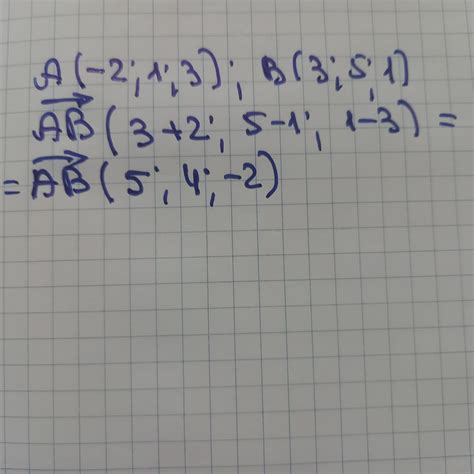 A(-2; 1; 3); B(3; 5; 1)
AB→(3+2; 5-1; 1-3) =
= AB→(5; 4; -2)